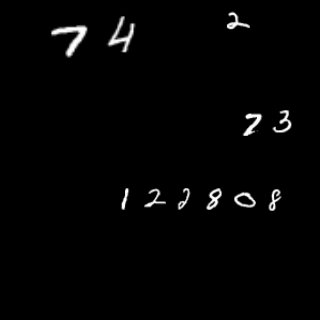 74
2
73
122808